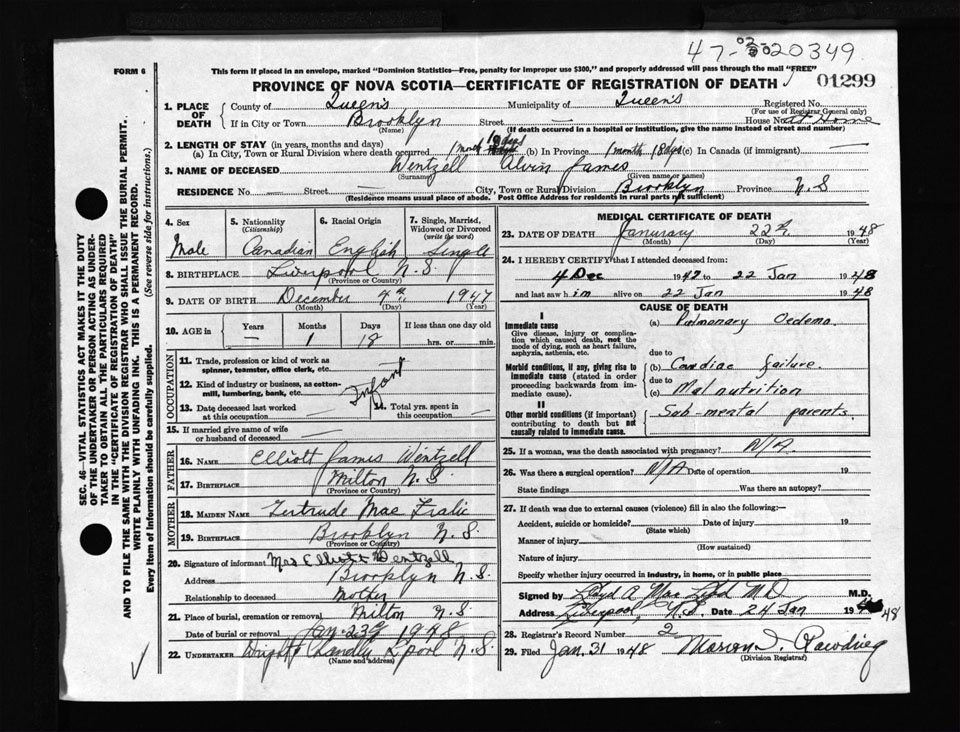 47-02 020349
FORM 6
This form if placed in an envelope, marked "Dominion Statistics—Free, penalty for improper use $300," and properly addressed will pass through the mail "FREE"
PROVINCE OF NOVA SCOTIA—CERTIFICATE OF REGISTRATION OF DEATH
01299
1. PLACE OF DEATH
County of Queen's Municipality of Queen's Registered No.
(For use of Registrar General only)
If in City or Town Brooklyn Street — House No. at Home
(Name) (If death occurred in a hospital or institution, give the name instead of street and number)
2. LENGTH OF STAY (in years, months and days)
(a) In City, Town or Rural Division where death occurred 1 month 18 days (b) In Province 1 month 18 dys (c) In Canada (if immigrant) —
3. NAME OF DECEASED Wentzell Alvin James
(Surname) (Given name or names)
RESIDENCE No. — Street — City, Town or Rural Division Brooklyn Province N.S
(Residence means usual place of abode. Post Office Address for residents in rural parts not sufficient)
4. Sex
Male
5. Nationality
(Citizenship)
Canadian
6. Racial Origin
English
7. Single, Married, Widowed or Divorced
(write the word)
Single
8. BIRTHPLACE Liverpool N.S.
(Province or Country)
9. DATE OF BIRTH December 4th 1947
(Month) (Day) (Year)
10. AGE in
Years Months Days If less than one day old
— 1 18 hrs. or min.
OCCUPATION
11. Trade, profession or kind of work as spinner, teamster, office clerk, etc.
12. Kind of industry or business, as cotton-mill, lumbering, bank, etc.
Infant
13. Date deceased last worked at this occupation —
14. Total yrs. spent in this occupation —
15. If married give name of wife or husband of deceased —
FATHER
16. NAME Elliott James Wentzell
17. BIRTHPLACE Milton N.S
(Province or Country)
MOTHER
18. MAIDEN NAME Gertrude Mae Fralic
19. BIRTHPLACE Brooklyn N.S.
(Province or Country)
20. Signature of informant Mrs Elliott Wentzell
Address Brooklyn N.S.
Relationship to deceased Mother
21. Place of burial, cremation or removal Milton N.S
Date of burial or removal Jan. 23rd 1948
22. UNDERTAKER Wright Chandler L'pool N.S.
(Name and address)
MEDICAL CERTIFICATE OF DEATH
23. DATE OF DEATH January 22nd 1948
(Month) (Day) (Year)
24. I HEREBY CERTIFY that I attended deceased from:
4 Dec 1947 to 22 Jan 1948
and last saw him alive on 22 Jan 1948
CAUSE OF DEATH
I
Immediate cause
Give disease, injury or complication which caused death, not the mode of dying, such as heart failure, asphyxia, asthenia, etc.
(a) Pulmonary Oedema
due to
Morbid conditions, if any, giving rise to immediate cause (stated in order proceeding backwards from immediate cause).
(b) Cardiac failure.
due to
(c) Malnutrition
II
Other morbid conditions (if important) contributing to death but not causally related to immediate cause.
Sub-mental parents.
25. If a woman, was the death associated with pregnancy? N/A.
26. Was there a surgical operation? N/A Date of operation 19
State findings Was there an autopsy?
27. If death was due to external causes (violence) fill in also the following:—
Accident, suicide or homicide? Date of injury 19
(State which)
Manner of injury
(How sustained)
Nature of injury
Specify whether injury occurred in industry, in home, or in public place
Signed by Lloyd A. MacLeod M.D. M.D.
Address Liverpool, N.S. Date 24 Jan 1948
28. Registrar's Record Number 2
29. Filed Jan. 31 1948
(Division Registrar)
SEC. 46—VITAL STATISTICS ACT MAKES IT THE DUTY
OF THE UNDERTAKER OR PERSON ACTING AS UNDERTAKER TO OBTAIN ALL THE PARTICULARS REQUIRED
IN THE "CERTIFICATE OF REGISTRATION OF DEATH"
AND TO FILE THE SAME WITH THE DIVISION REGISTRAR WHO SHALL ISSUE THE BURIAL PERMIT.
WRITE PLAINLY WITH UNFADING INK. THIS IS A PERMANENT RECORD.
Every item of Information should be carefully supplied. (See reverse side for instructions.)